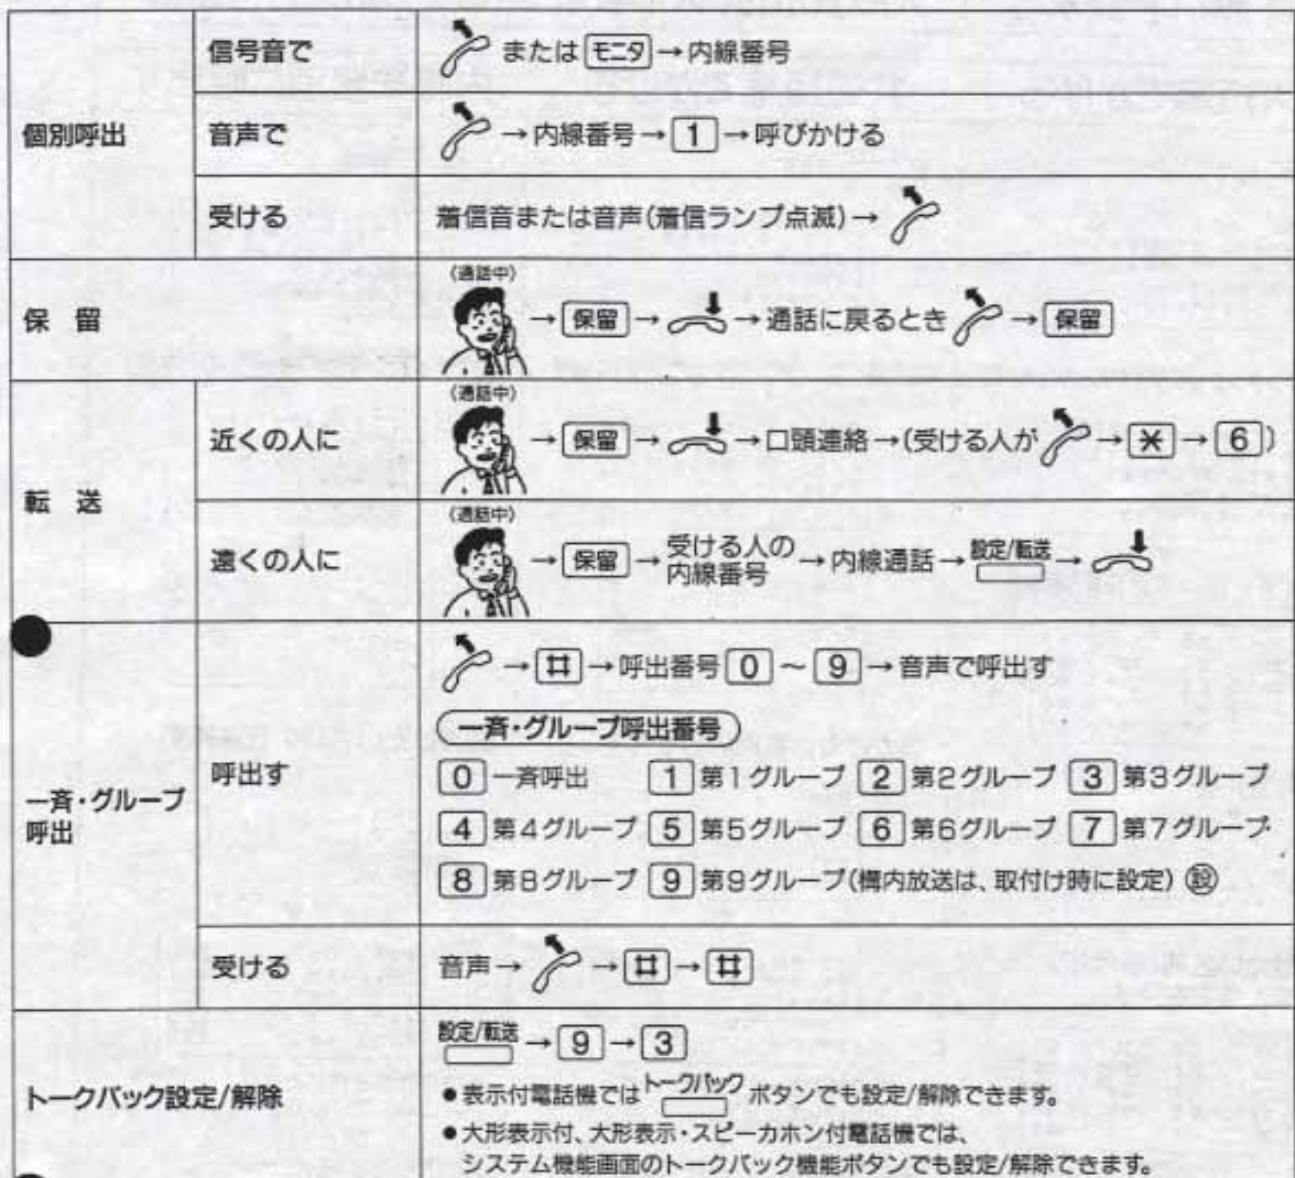 個別呼出
信号音で
または モニタ→内線番号
音声で
→内線番号→1→呼びかける
受ける
着信音または音声(着信ランプ点滅)→
保 留
(通話中)
→保留→→通話に戻るとき→保留
転 送
近くの人に
(通話中)
→保留→→口頭連絡→(受ける人が→＊→6)
遠くの人に
(通話中)
→保留→受ける人の内線番号→内線通話→設定/転送→
一斉・グループ
呼出
呼出す
→♯→呼出番号 0～9→音声で呼出す
一斉・グループ呼出番号
0 一斉呼出 1 第1グループ 2 第2グループ 3 第3グループ
4 第4グループ 5 第5グループ 6 第6グループ 7 第7グループ
8 第8グループ 9 第9グループ(構内放送は、取付け時に設定) 設
受ける
音声→→♯→♯
トークバック設定/解除
設定/転送→9→3
●表示付電話機ではトークバックボタンでも設定/解除できます。
●大形表示付、大形表示・スピーカホン付電話機では、
システム機能画面のトークバック機能ボタンでも設定/解除できます。